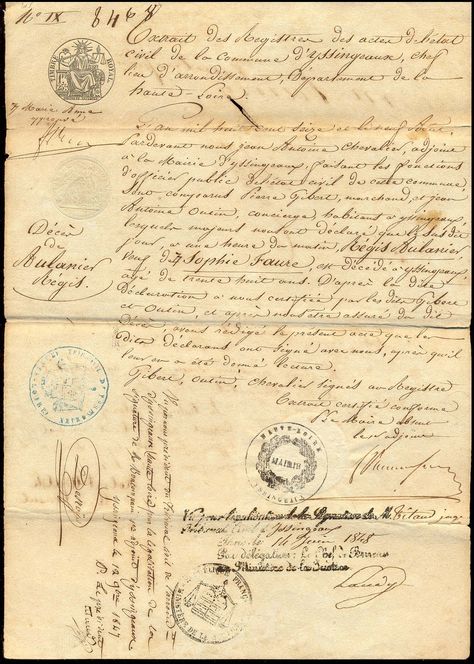 No IX 8468
TIMBRE ROYAL
Extrait des Registres des actes de l'état
civil de la Commune d'Yssingeaux, chef
lieu d'arrondissement, Département de la
haute-Loire
L'an mil huit cent seize et le neuf
Pardevant nous jean Antoine Chevalier, adjoint
à la Mairie d'yssingeaux, faisant les fonctions
d'officier public de l'état civil de cette commune
Sont comparus Pierre Gibert, marchand, et jean
Antoine Outin, concierge habitants à yssingeaux
lesquels majeurs nous ont déclaré que le susdit
jour, à une heure du matin, Régis Bulanier
Sophie Faure, est décédé à yssingeaux
agé de trente huit ans. D'après la dite
Déclaration à nous certifiée par les dits Gibert
et Outin, et après nous être assuré du dit
Décès, avons rédigé le présent acte que les
dits déclarans ont signé avec nous, après qu'il
leur en a été donné lecture.
Gibert, Outin, Chevalier signés au Registre
Extrait certifié conforme
Le Maire absent
adjoint
Décès
de
Bulanier
Régis.
HAUTE-LOIRE
MAIRIE
Vu pour légalisation de la Signature de M. juge
Yssingeaux
14 1848
Par délégation: Le Chef de Bureau
Ministère de la Justice
Vu par nous président du Tribunal civil de
d'yssingeaux haute loire pour légalisation de la
signature de
yssingeaux le 1847